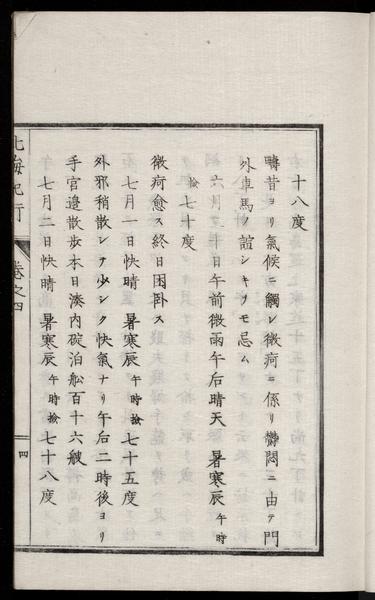 十八度
疇昔ヨリ氣候ニ觸レ微疴ニ係リ鬱悶ニ由テ門
外車馬ノ諠シキヲモ忌ム
六月三十日午前微雨午后晴天 暑寒辰午時
檢七十度
微疴愈ス終日困臥ス
七月一日快晴 暑寒辰午時檢七十五度
外邪稍散シテ少シク快氣ナリ午后二時後ヨリ
手宮邉散歩本日湊内碇泊舩百十六艘
七月二日快晴 暑寒辰午時檢七十八度
北海紀行 卷之四 四